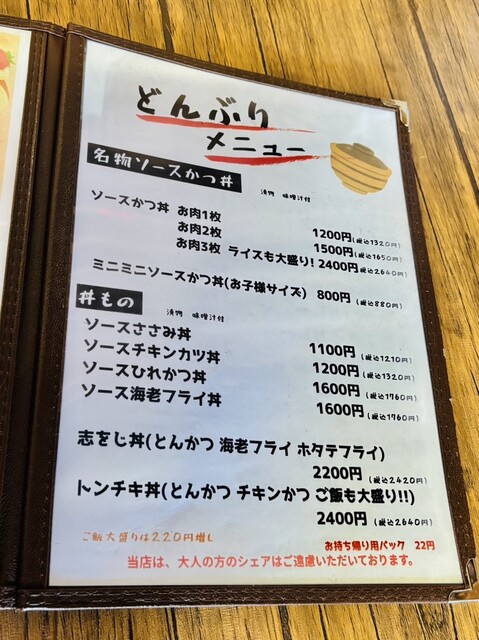 どんぶり
メニュー
名物ソースかつ丼
漬物 味噌汁付
ソースかつ丼 お肉1枚 1200円(税込1320円)
お肉2枚 1500円(税込1650円)
お肉3枚 ライスも大盛り! 2400円(税込2640円)
ミニミニソースかつ丼(お子様サイズ) 800円(税込880円)
丼もの
漬物 味噌汁付
ソースささみ丼 1100円(税込1210円)
ソースチキンカツ丼 1200円(税込1320円)
ソースひれかつ丼 1600円(税込1760円)
ソース海老フライ丼 1600円(税込1760円)
志をじ丼(とんかつ 海老フライ ホタテフライ)
2200円(税込2420円)
トンチキ丼(とんかつ チキンかつ ご飯も大盛り!!)
2400円(税込2640円)
ご飯大盛りは220円増し
お持ち帰り用パック 22円
当店は、大人の方のシェアはご遠慮いただいております。